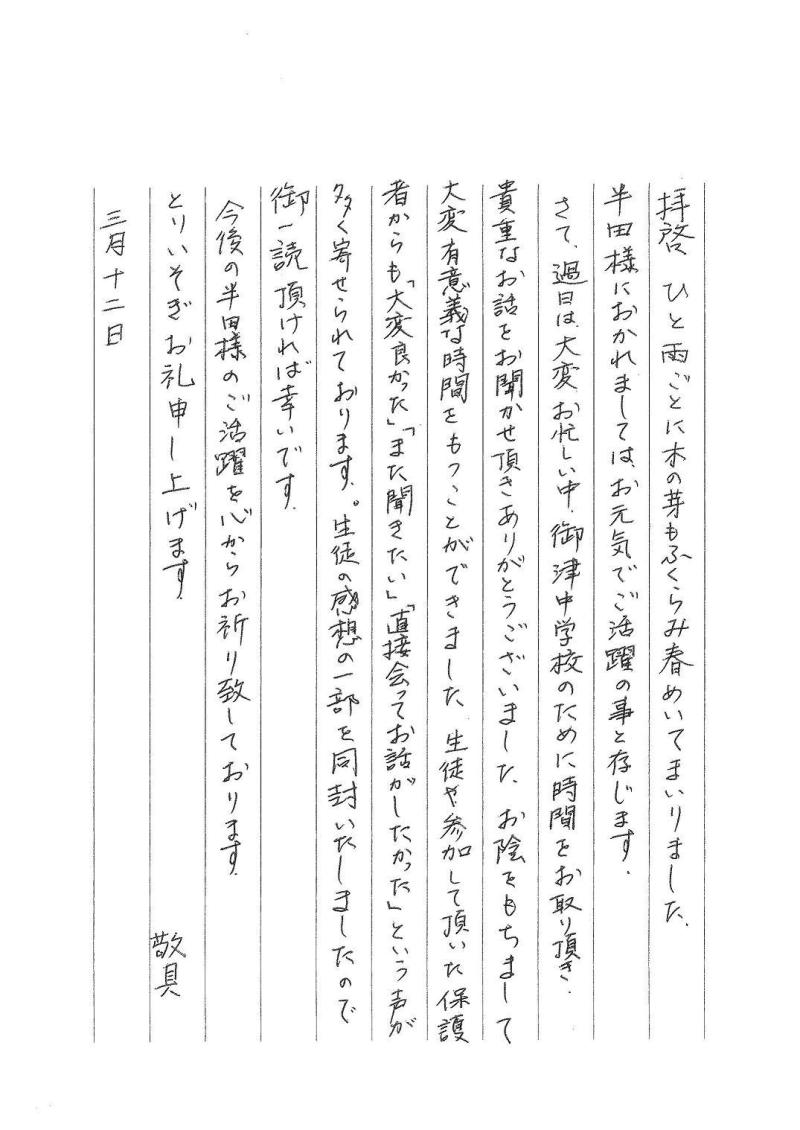 拝啓 ひと雨ごとに木の芽もふくらみ春めいてまいりました。
半田様におかれましては、お元気でご活躍の事と存じます。
さて、過日は、大変お忙しい中、御津中学校のために時間をお取り頂き、
貴重なお話をお聞かせ頂きありがとうございました。お陰をもちまして
大変有意義な時間をもつことができました。生徒や参加して頂いた保護
者からも「大変良かった」「また聞きたい」「直接会ってお話がしたかった」という声が
多く寄せられております。。生徒の感想の一部を同封いたしましたので
御一読頂ければ幸いです。
今後の半田様のご活躍を心からお祈り致しております。
とりいそぎお礼申し上げます。 敬具
三月十二日